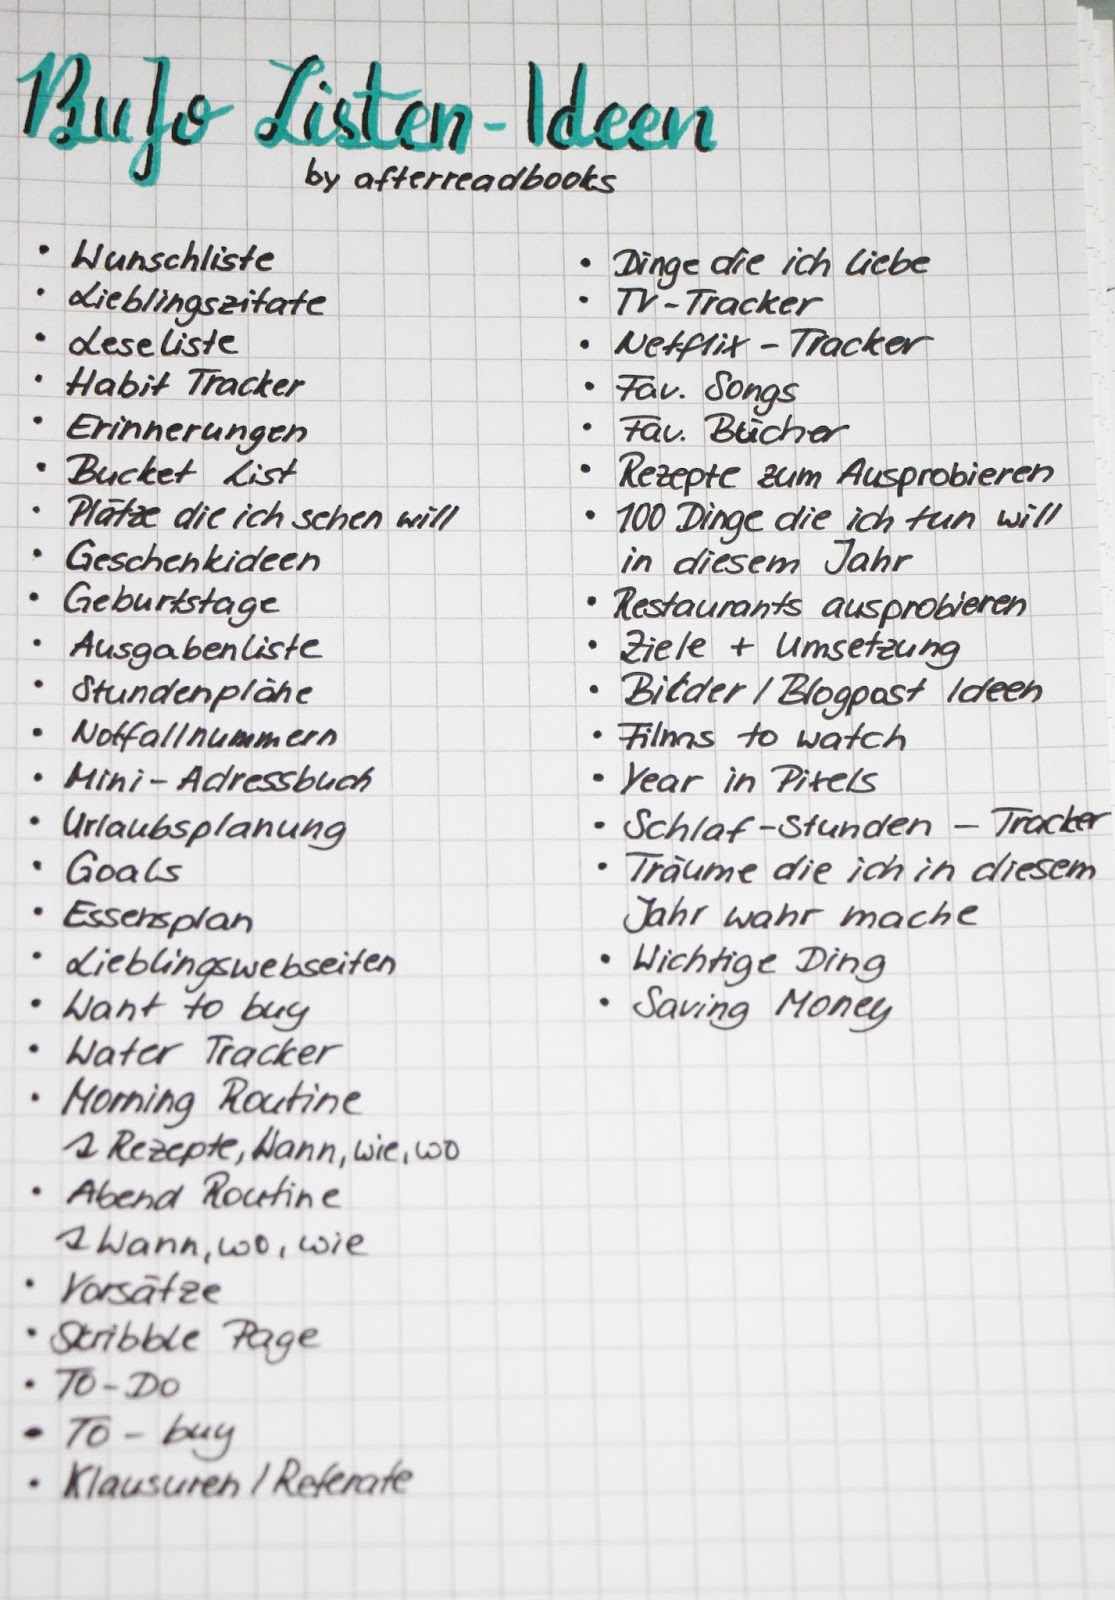 BuJo Listen-Ideen
by afterreadbooks
• Wunschliste
• Lieblingszitate
• Leseliste
• Habit Tracker
• Erinnerungen
• Bucket List
• Plätze die ich sehen will
• Geschenkideen
• Geburtstage
• Ausgabenliste
• Stundenpläne
• Notfallnummern
• Mini-Adressbuch
• Urlaubsplanung
• Goals
• Essensplan
• Lieblingswebseiten
• Want to buy
• Water Tracker
• Morning Routine
↳ Rezepte, Wann, wie, wo
• Abend Routine
↳ Wann, wo, wie
• Vorsätze
• Skribble Page
• To-Do
• To-buy
• Klausuren/Referate
• Dinge die ich liebe
• TV-Tracker
• Netflix-Tracker
• Fav. Songs
• Fav. Bücher
• Rezepte zum Ausprobieren
• 100 Dinge die ich tun will
in diesem Jahr
• Restaurants ausprobieren
• Ziele + Umsetzung
• Bilder/Blogpost Ideen
• Films to watch
• Year in Pixels
• Schlaf-Stunden-Tracker
• Träume die ich in diesem
Jahr wahr mache
• Wichtige Ding
• Saving Money